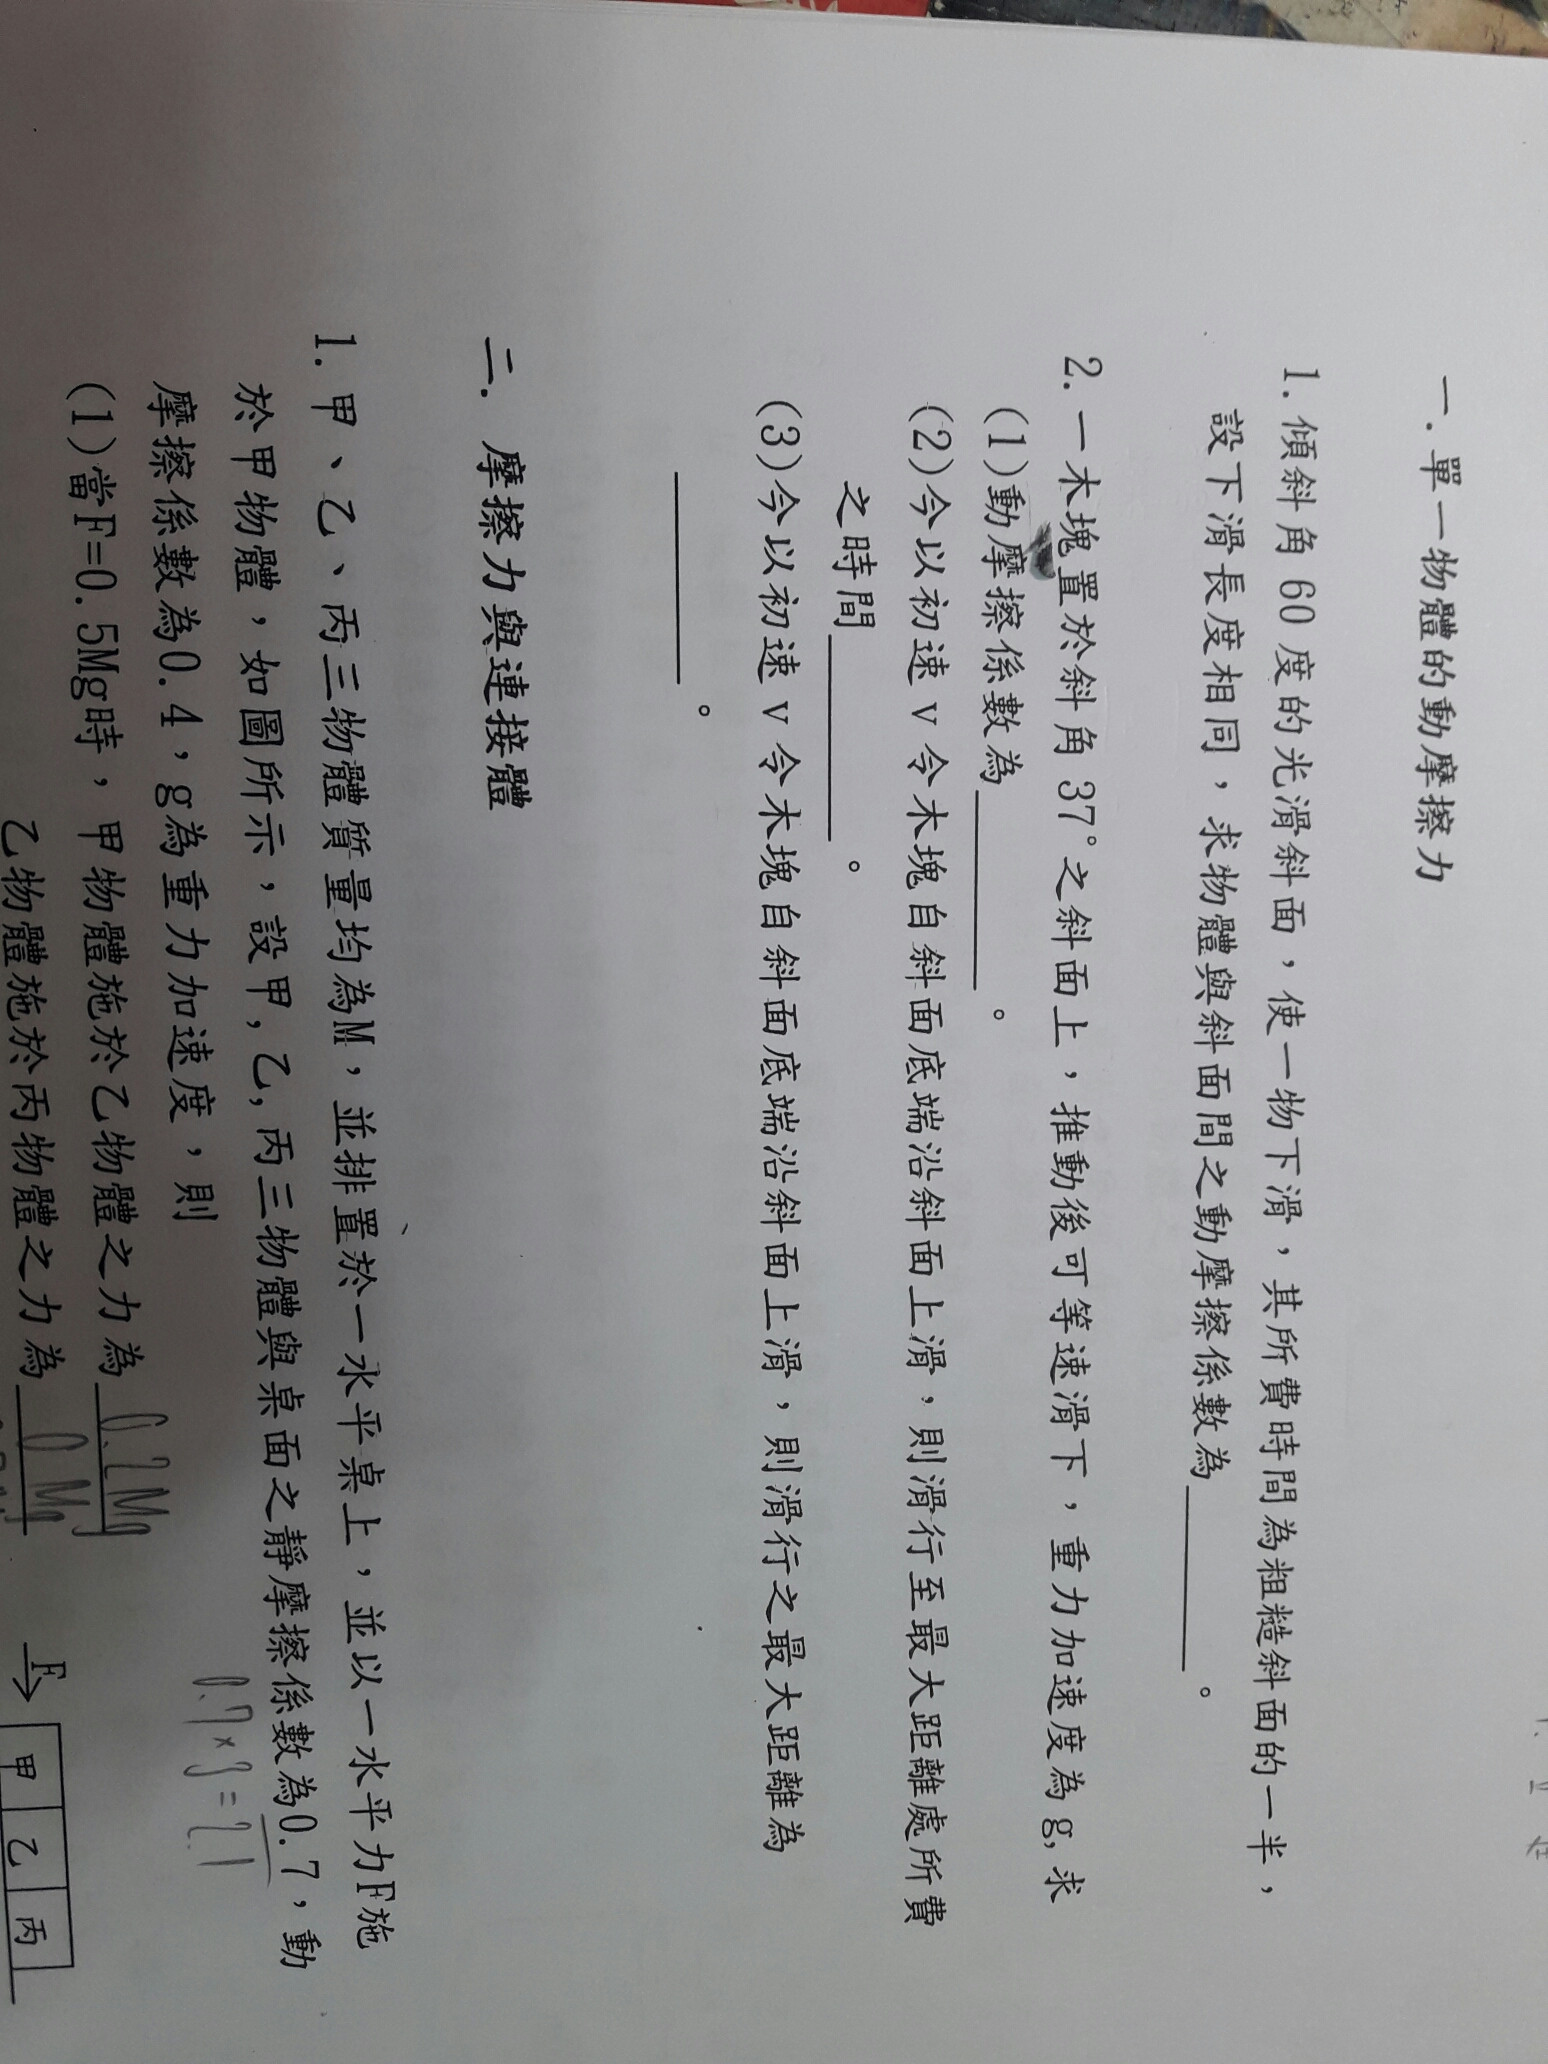 一.單一物體的動摩擦力
1.傾斜角60度的光滑斜面，使一物下滑，其所費時間為粗糙斜面的一半，
設下滑長度相同，求物體與斜面間之動摩擦係數為______。
2.一木塊置於斜角37°之斜面上，推動後可等速滑下，重力加速度為g,求
(1)動摩擦係數為______。
(2)今以初速v令木塊自斜面底端沿斜面上滑，則滑行至最大距離處所費
之時間______。
(3)今以初速v令木塊自斜面底端沿斜面上滑，則滑行之最大距離為
______。
二.摩擦力與連接體
1.甲、乙、丙三物體質量均為M，並排置於一水平桌上，並以一水平力F施
於甲物體，如圖所示，設甲,乙,丙三物體與桌面之靜摩擦係數為0.7，動
摩擦係數為0.4，g為重力加速度，則
0.7×3=2.1
(1)當F=0.5Mg時，甲物體施於乙物體之力為 0.2Mg
乙物體施於丙物體之力為 0 Mg
F
甲 乙 丙